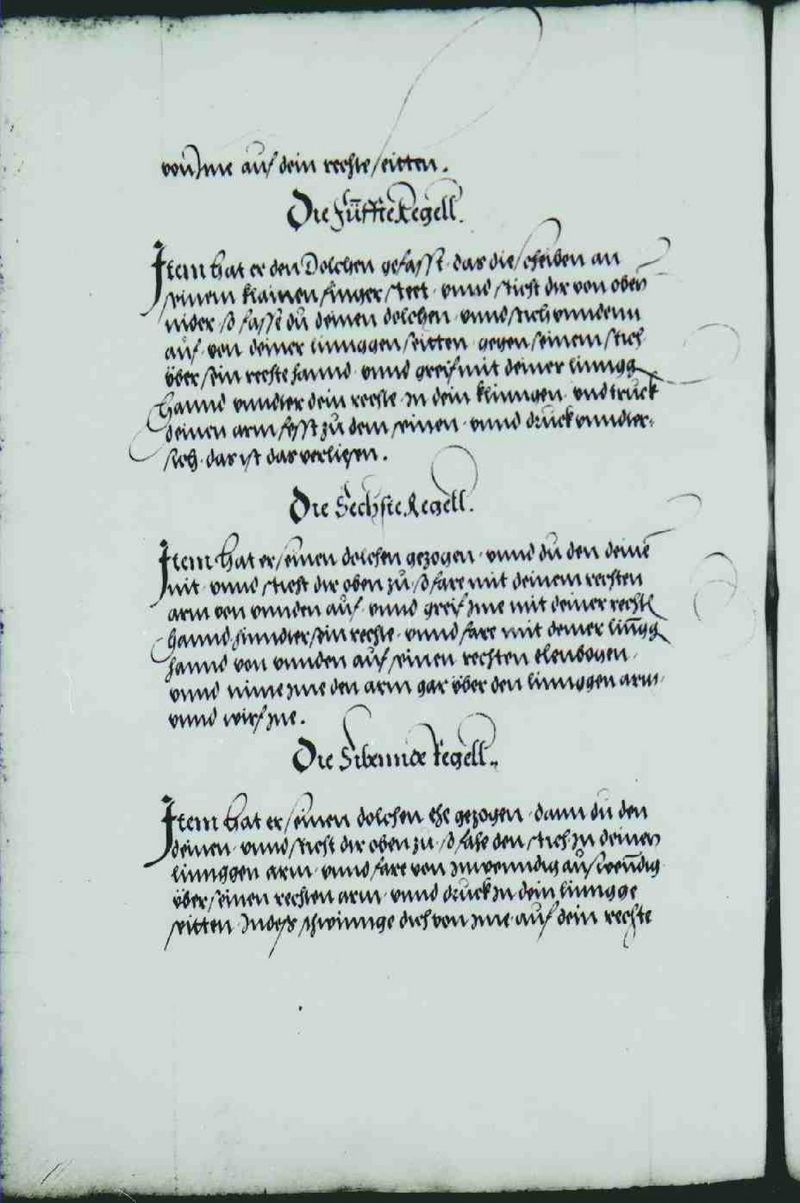 von Ime auf dein rechte seitten.
Die Fünffte Regell.
Item hat er den Dolchen gefasst · das die scheiben an
seinem klainen finger steet · vnnd sticht dir von oben
nider · so fasse dú deinen dolchen · vnnd stich vnndenn
auf · von deiner linnggen seitten · gegen seinem stich
über sein rechte hannd · vnnd greif mit deiner lingg
hannd vnndter dein rechte · In dein klinngen · vnd truck
deinen arm fesst zú dem seinen · vnnd druck vnndter-
sich · das ist das verligen.
Die Sechste Regell.
Item hat er seinen dolchen gezogen · vnnd dú den deinē
nit · vnnd sticht dir oben zú · so fare mit deinem rechten
arm von vnnden auf · vnnd greif Ime mit deiner rechtē
hannd hinndter sein rechte · vnnd fare mit deiner lingg
hannd von vnnden auf seinen rechten elenbogen ·
vnnd nime Ime den arm gar über den linnggen arm ·
vnnd wirf Ine.
Die Sibennde Regell.
Item hat er seinen dolchen ehe gezogen · dann dú den
deinen · vnnd sticht dir oben zú · so fahe den stich In deinen
linnggen arm · vnnd fare von Innwenndig auswenndig
über seinen rechten arm · vnnd druck In dein lingge
seitten · Indess schwinnge dich von Ime auf dein rechte